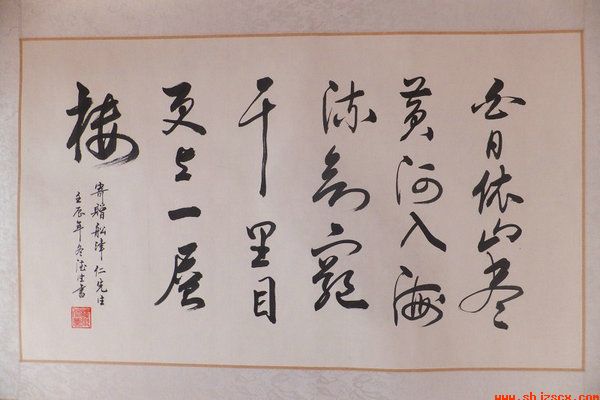 白日依山尽
黄河入海
流欲窮
千里目
更上一層
楼
寄贈船津仁先生
壬辰年冬書
www.shjzscx.